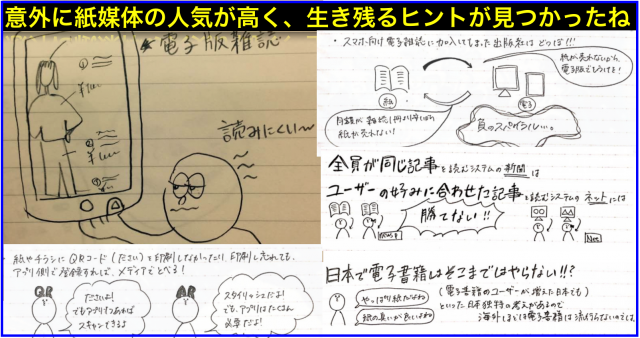 意外に紙媒体の人気が高く、生き残るヒントが見つかったね
★電子版雑誌
①
¥
②
¥
③
読みにくい〜
・スマホ向け電子雑誌に加入してしまった出版社は どつぼ!!!
紙が売れないから
電子版でもうけを!
紙
電子
紙が売れない!
負のスパイラル…。
全員が同じ記事を読むシステムの新聞は
ユーザーの好みに合わせた記事を読むシステムのネットには
勝てない!!
Net
紙やチラシにQRコード(ださい)を印刷しなかったり、印刷し忘れても、
アプリ側で登録すれば、メディアでとべる!
QR
ださいよ!
でもアプリ1つあれば
スキャンできるよ
AR
スタイリッシュだよ!
でも、アプリはたくさん
必要だよ!
日本で電子書籍はそこまではやらない!!?
やっぱり紙だよね
紙の良いが良いよね
(電子書籍のユーザーが増えた日本でも)
といった日本独特の考えがあるので
海外ほどは電子書籍は流行らないのでは。